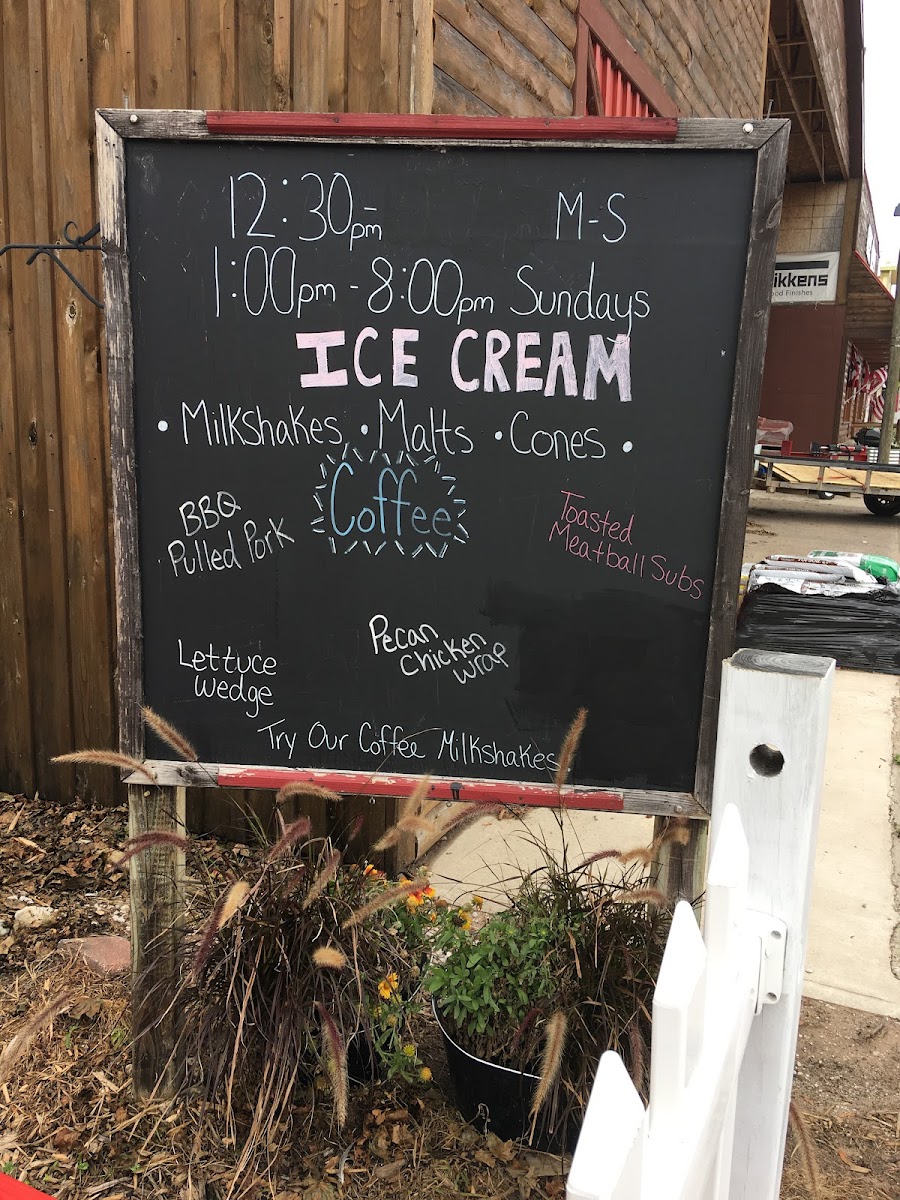 12:30pm M-S
1:00pm - 8:00pm Sundays
ICE CREAM
• Milkshakes • Malts • Cones •
Coffee
BBQ
Pulled Pork
Toasted
Meatball Subs
Pecan
chicken
wrap
Lettuce
wedge
Try Our Coffee Milkshakes
ikkens
ood Finishes